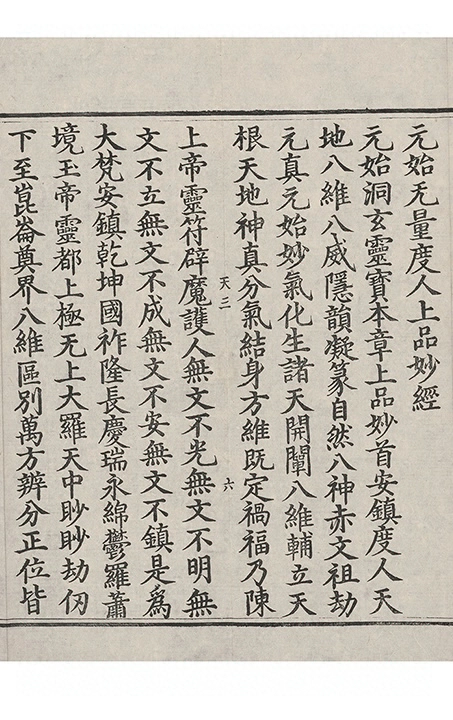 元始无量度人上品妙經
元始洞玄靈寶本章上品妙首安鎮度人天
地八維八威隱韻凝篆自然八神赤文祖劫
元真元始妙氣化生諸天開闡八維輔立天
根天地神真分氣結身方維既定禍福乃陳
天三 六
上帝靈符辟魔護人無文不光無文不明無
文不立無文不成無文不安無文不鎮是為
大梵安鎮乾坤國祚隆長慶瑞永綿鬱羅蕭
境玉帝靈都上極无上大羅天中眇眇劫仞
下至崑崙奠界八維區別萬方辨分正位皆